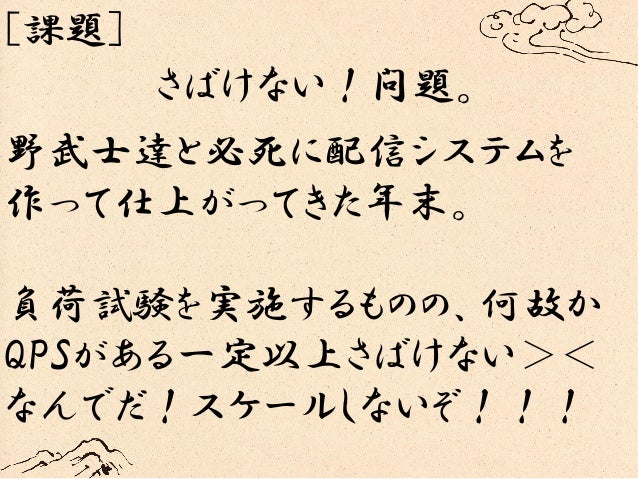 [課題]
さばけない！問題。
野武士達と必死に配信システムを
作って仕上がってきた年末。
負荷試験を実施するものの、何故か
QPSがある一定以上さばけない＞＜
なんでだ！スケールしないぞ！！！